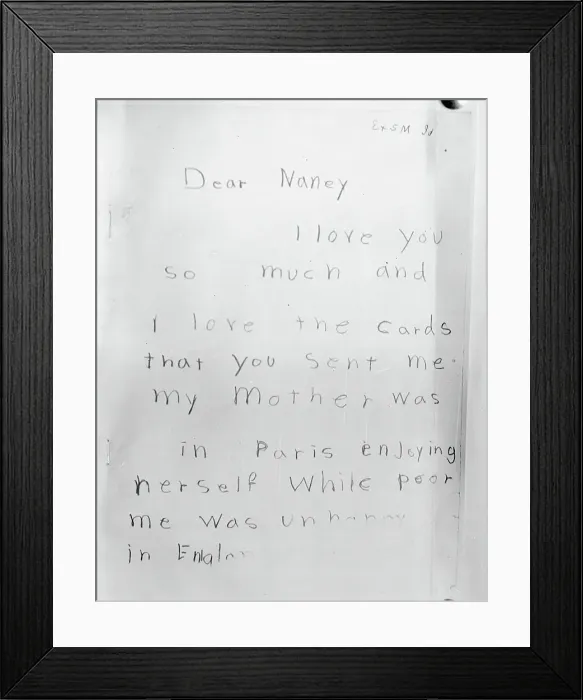 Dear Naney
I love you
so much and
I love the cards
that you sent me.
my Mother was
in Paris enjoying
herself while poor
me was
in